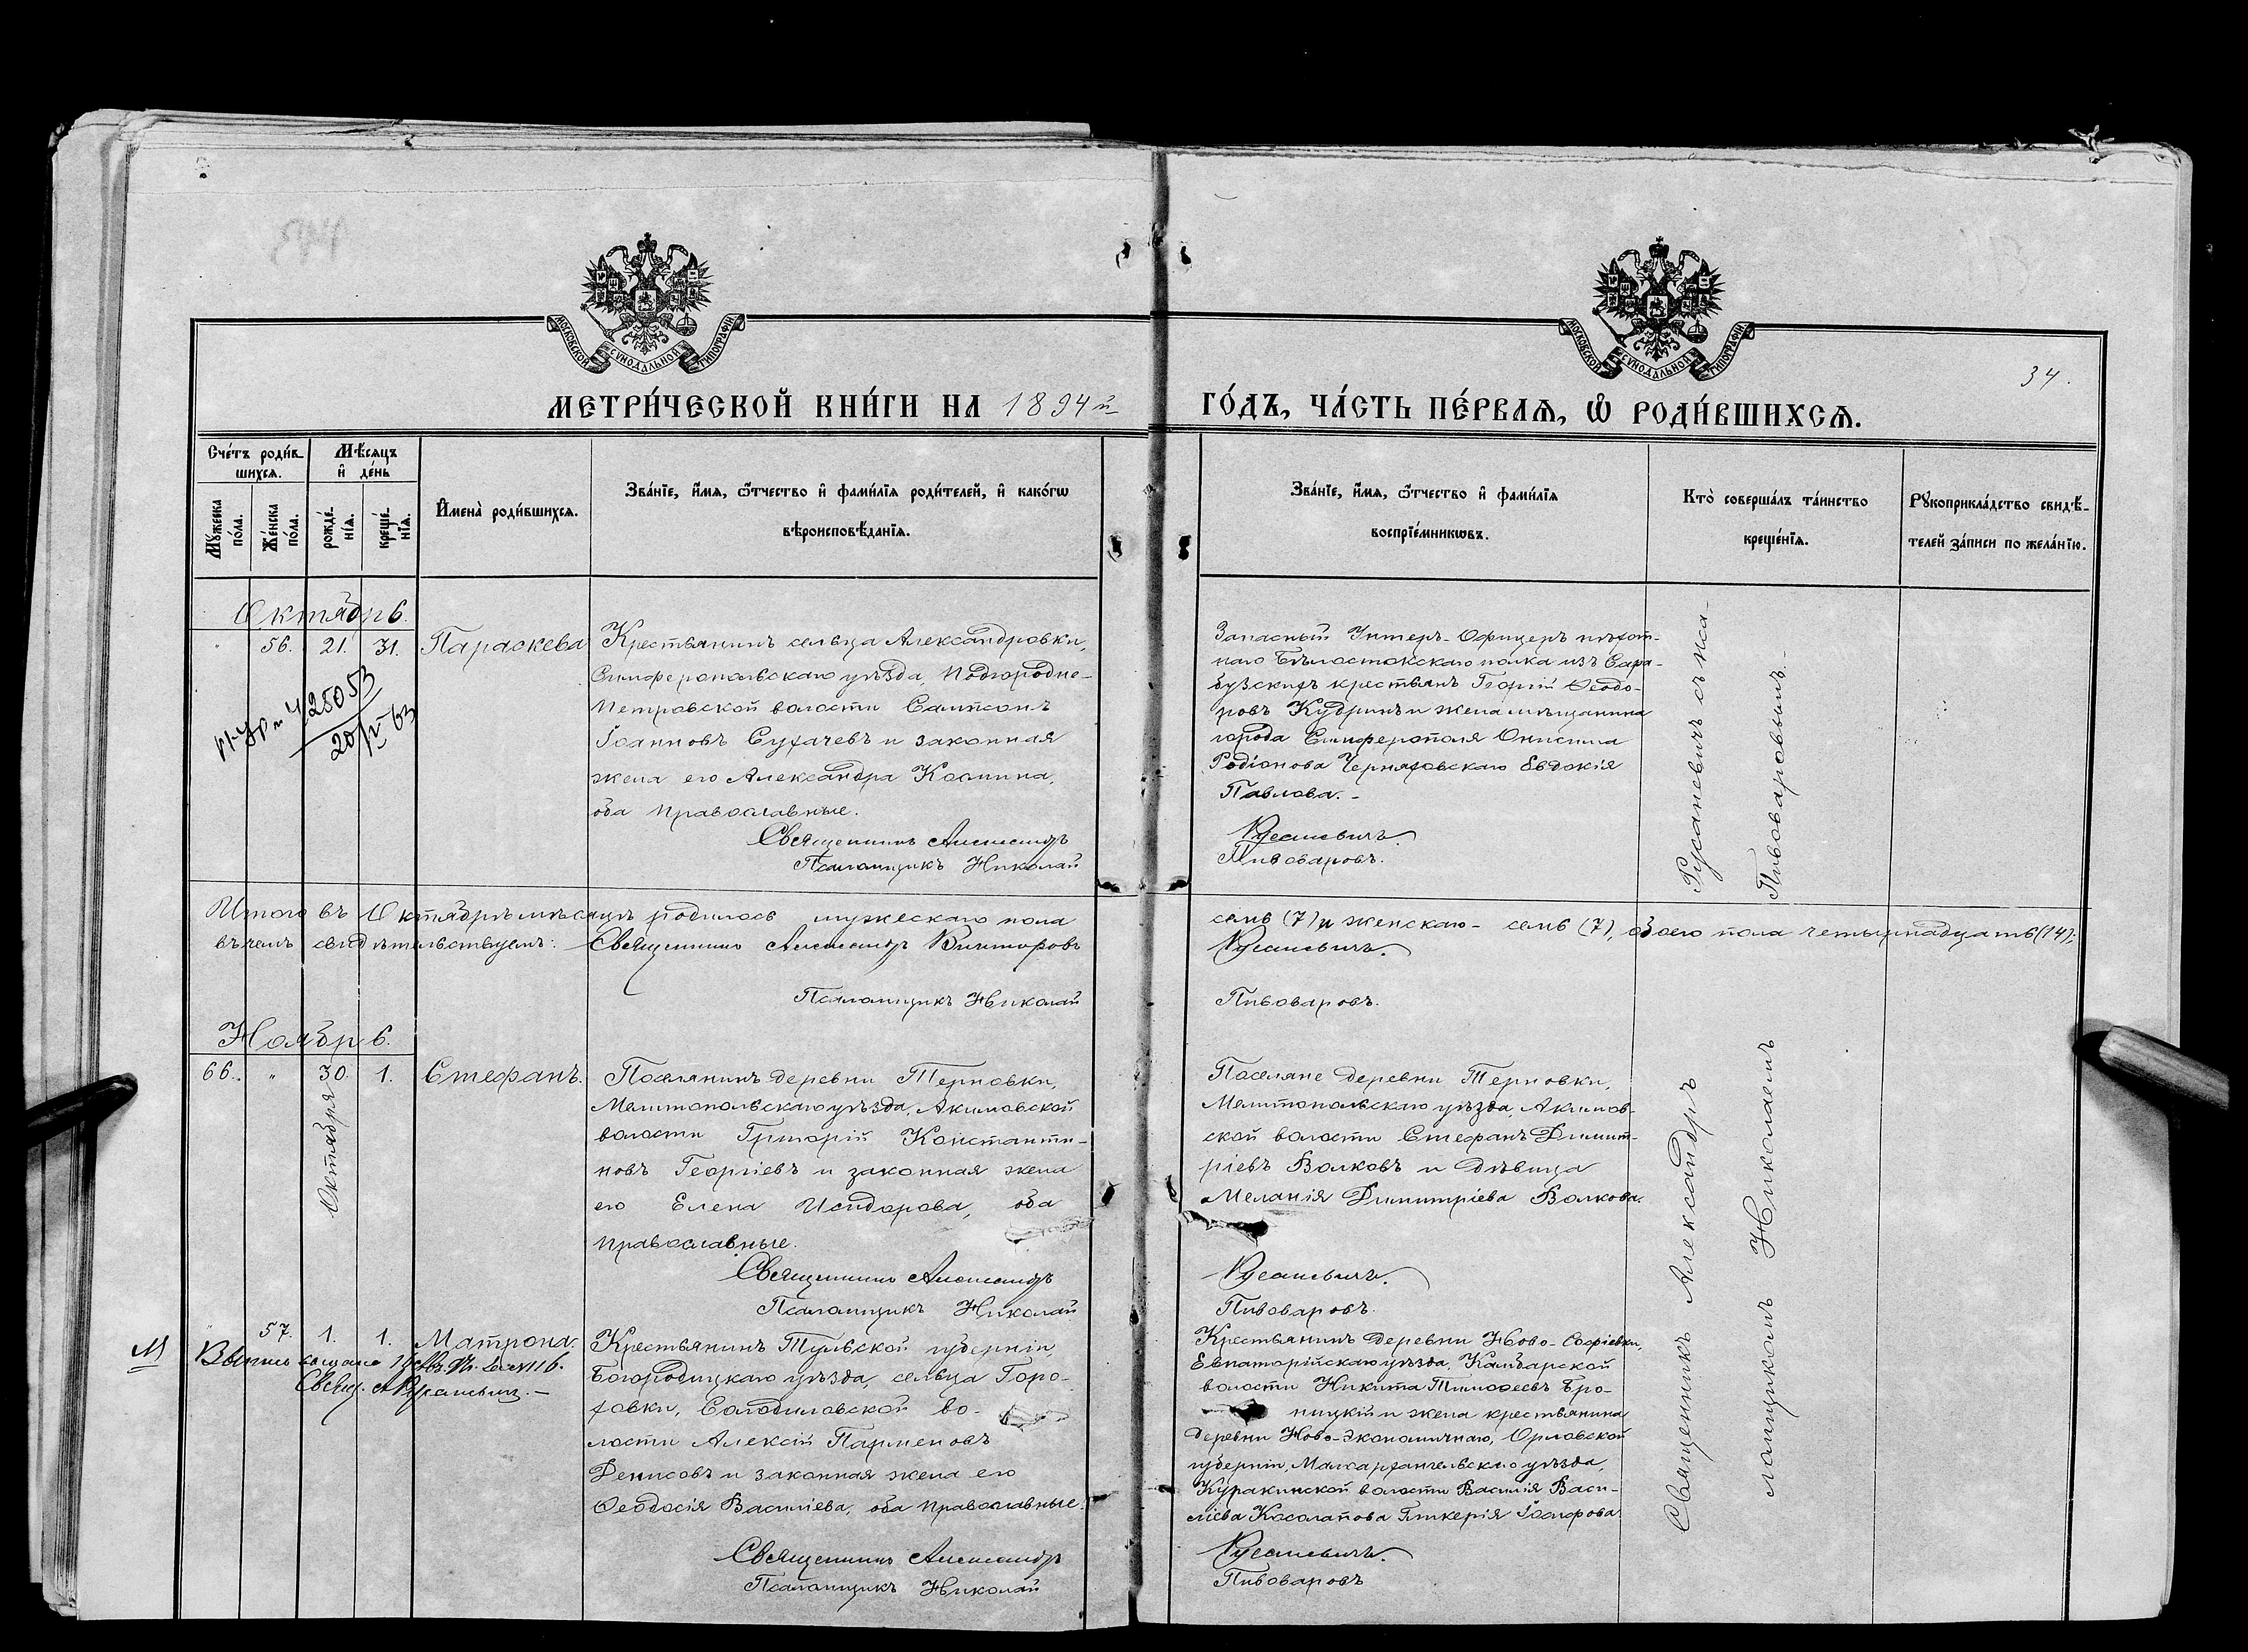 МОСКОВСКОЙ СѴНОДАЛЬНОЙ ТИПОГРАФІИ
МОСКОВСКОЙ СѴНОДАЛЬНОЙ ТИПОГРАФІИ
34.
МЕТРИ́ЧЕСКОЙ КНИ́ГИ НА 1894й
ГО́ДЪ, ЧА́СТЬ ПЕ́РВАѦ, Ѽ РОДИ́ВШИХСѦ.
Сче́тъ роди́в-
шихсѧ.
Мꙋ́жеска
по́ла.
Же́нска
по́ла.
Мѣ́сѧцъ
и҆ де́нь
рожде́-
нїѧ.
креще́-
нїѧ.
И҆мена̀ роди́вшихсѧ.
Зва́нїе, и҆́мѧ, ѻ҆́тчество и҆ фами́лїѧ роди́телей, и҆ како́гѡ
вѣроисповѣ́данїѧ.
Зва́нїе, и҆́мѧ, ѻ҆́тчество и҆ фами́лїѧ
воспрїе́мникѡвъ.
Кто̀ соверша́лъ та́инство
креще́нїѧ.
Рꙋкоприкла́дство свидѣ́-
телей за́писи по жела́нїю.
Октябрь.
" 56. 21. 31. Параскева
428053
20/IV 63
Крестьянинъ сельца Александровки,
Симферопольскаго уѣзда, Подгородне-
Петровской волости Сампсонъ
Іоанновъ Сухачевъ и законная
жена его Александра Космина,
оба православные.
Священникъ Александръ
Псаломщикъ Николай
Запасный Унтеръ-Офицеръ пѣхот-
наго Бѣлостокскаго полка изъ Сара-
бузскихъ крестьянъ Георгій Ѳеодо-
ровъ Кудринъ и жена мѣщанина
города Симферополя Онисима
Родіонова Черняховскаго Евдокія
Павлова.-
Русаневичъ.
Пивоваровъ.
Русаневичъ съ пса-
Пивоваровымъ.-
Итого въ Октябрѣ мѣсяцѣ родилось мужескаго пола
семь (7) и женскаго - семь (7), обоего пола четырнадцать (14);
въ чемъ свидѣтельствуемъ: Священникъ Александръ Викторовъ
Русаневичъ.
Псаломщикъ Николай
Пивоваровъ.
Ноябрь.
66. " 30. 1. Стефанъ.
Октября
Поселянинъ деревни Терновки,
Мелитопольскаго уѣзда, Акимовской
волости Григорій Константи-
новъ Георгіевъ и законная жена
его Елена Исидорова, оба
православные.
Священникъ Александръ
Псаломщикъ Николай
Поселяне деревни Терновки,
Мелитопольскаго уѣзда, Акимов-
ской волости Стефанъ Димит-
ріевъ Волковъ и дѣвица
Меланія Димитріева Волкова.
Русаневичъ.
Пивоваровъ.
М
" 57. 1. 1. Матрона.
Выпись
Свящ. А Русаневичъ.-
Крестьянинъ Тульской губерніи,
Богородицкаго уѣзда, сельца Горо-
ховки, Солодиловской во-
лости Алексій Парменовъ
Денисовъ и законная жена его
Ѳеодосія Василіева, оба православные.
Священникъ Александръ
Псаломщикъ Николай
Крестьянинъ деревни Ново-Софіевки,
Евпаторійскаго уѣзда, Камбарской
волости Никита Тимоѳеевъ Бро-
ницкій и жена крестьянина
деревни Ново-Экономичнаго, Орловской
губерніи, Малоархангельскаго уѣзда,
Куракинской волости Василія Васи-
ліева Косолапова Гликерія
Русаневичъ.
Пивоваровъ
Священникъ Александръ
ломщикомъ Николаемъ